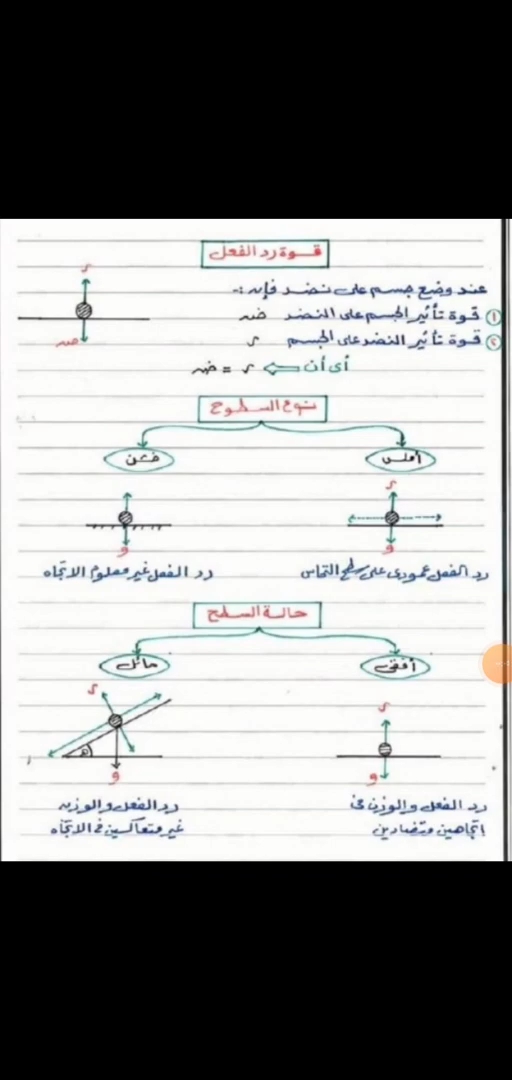 قوة رد الفعل
عند وضع جسم على نضد فإن :-
١ قوة تأثير الجسم على النضد ضه
٢ قوة تأثير النضد على الجسم ر
أى أن ⇐ ر = ضه
ر
ضه
نوع السطوح
أملس
خشن
ر
و
و
رد الفعل عمودى على سطح التماس
رد الفعل غير معلوم الاتجاه
حالة السطح
أفقى
مائل
ر
و
ر
و
رد الفعل والوزن فى
اتجاهين متضادين
رد الفعل والوزن
غير متعاكسين فى الاتجاه